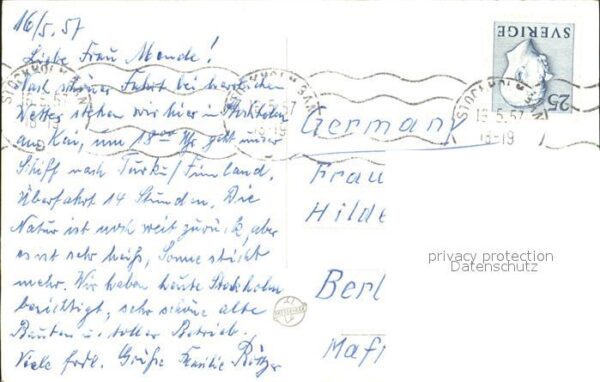 16/5. 57
Liebe Frau Mende!
Nach schöner Fahrt bei herrlichem
Wetter stehen wir hier in Stockholm
am Kai, um 18.00 Uhr geht unser
Schiff nach Turku/Finnland.
Überfahrt 14 Stunden. Die
Natur ist noch weit zurück, aber
es ist sehr heiß, Sonne sticht
mehr. Wir haben heute Stockholm
besichtigt, sehr schöne alte
Bauten u. toller Betrieb.
Viele frdl. Grüße Familie
SVERIGE
25
STOCKHOLM BAN
16.5.57
18-19
STOCKHOLM BAN
16.5.57
18-19
Germany
Frau
Hilde
Berl
Mafi
privacy protection
Datenschutz